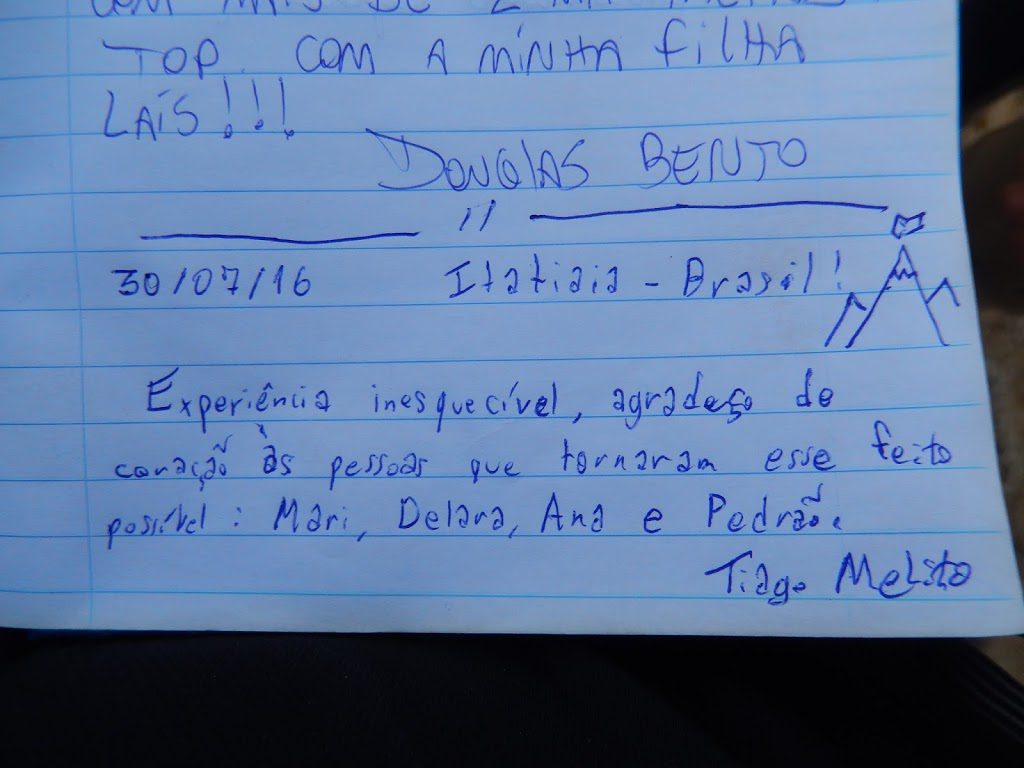 TOP. COM A MINHA FILHA
LAÍS!!!
DOUGLAS BENTO
30/07/16 Itatiaia - Brasil!
Experiência inesquecível, agradeço de
coração às pessoas que tornaram esse feito
possível: Mari, Delara, Ana e Pedrão.
Tiago Melito